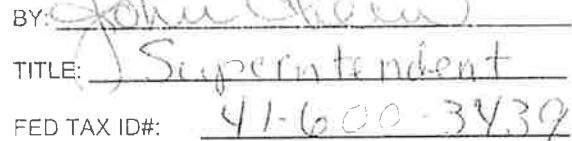 BY: John
TITLE: Superntendent
FED TAX ID#: 41-600-3439